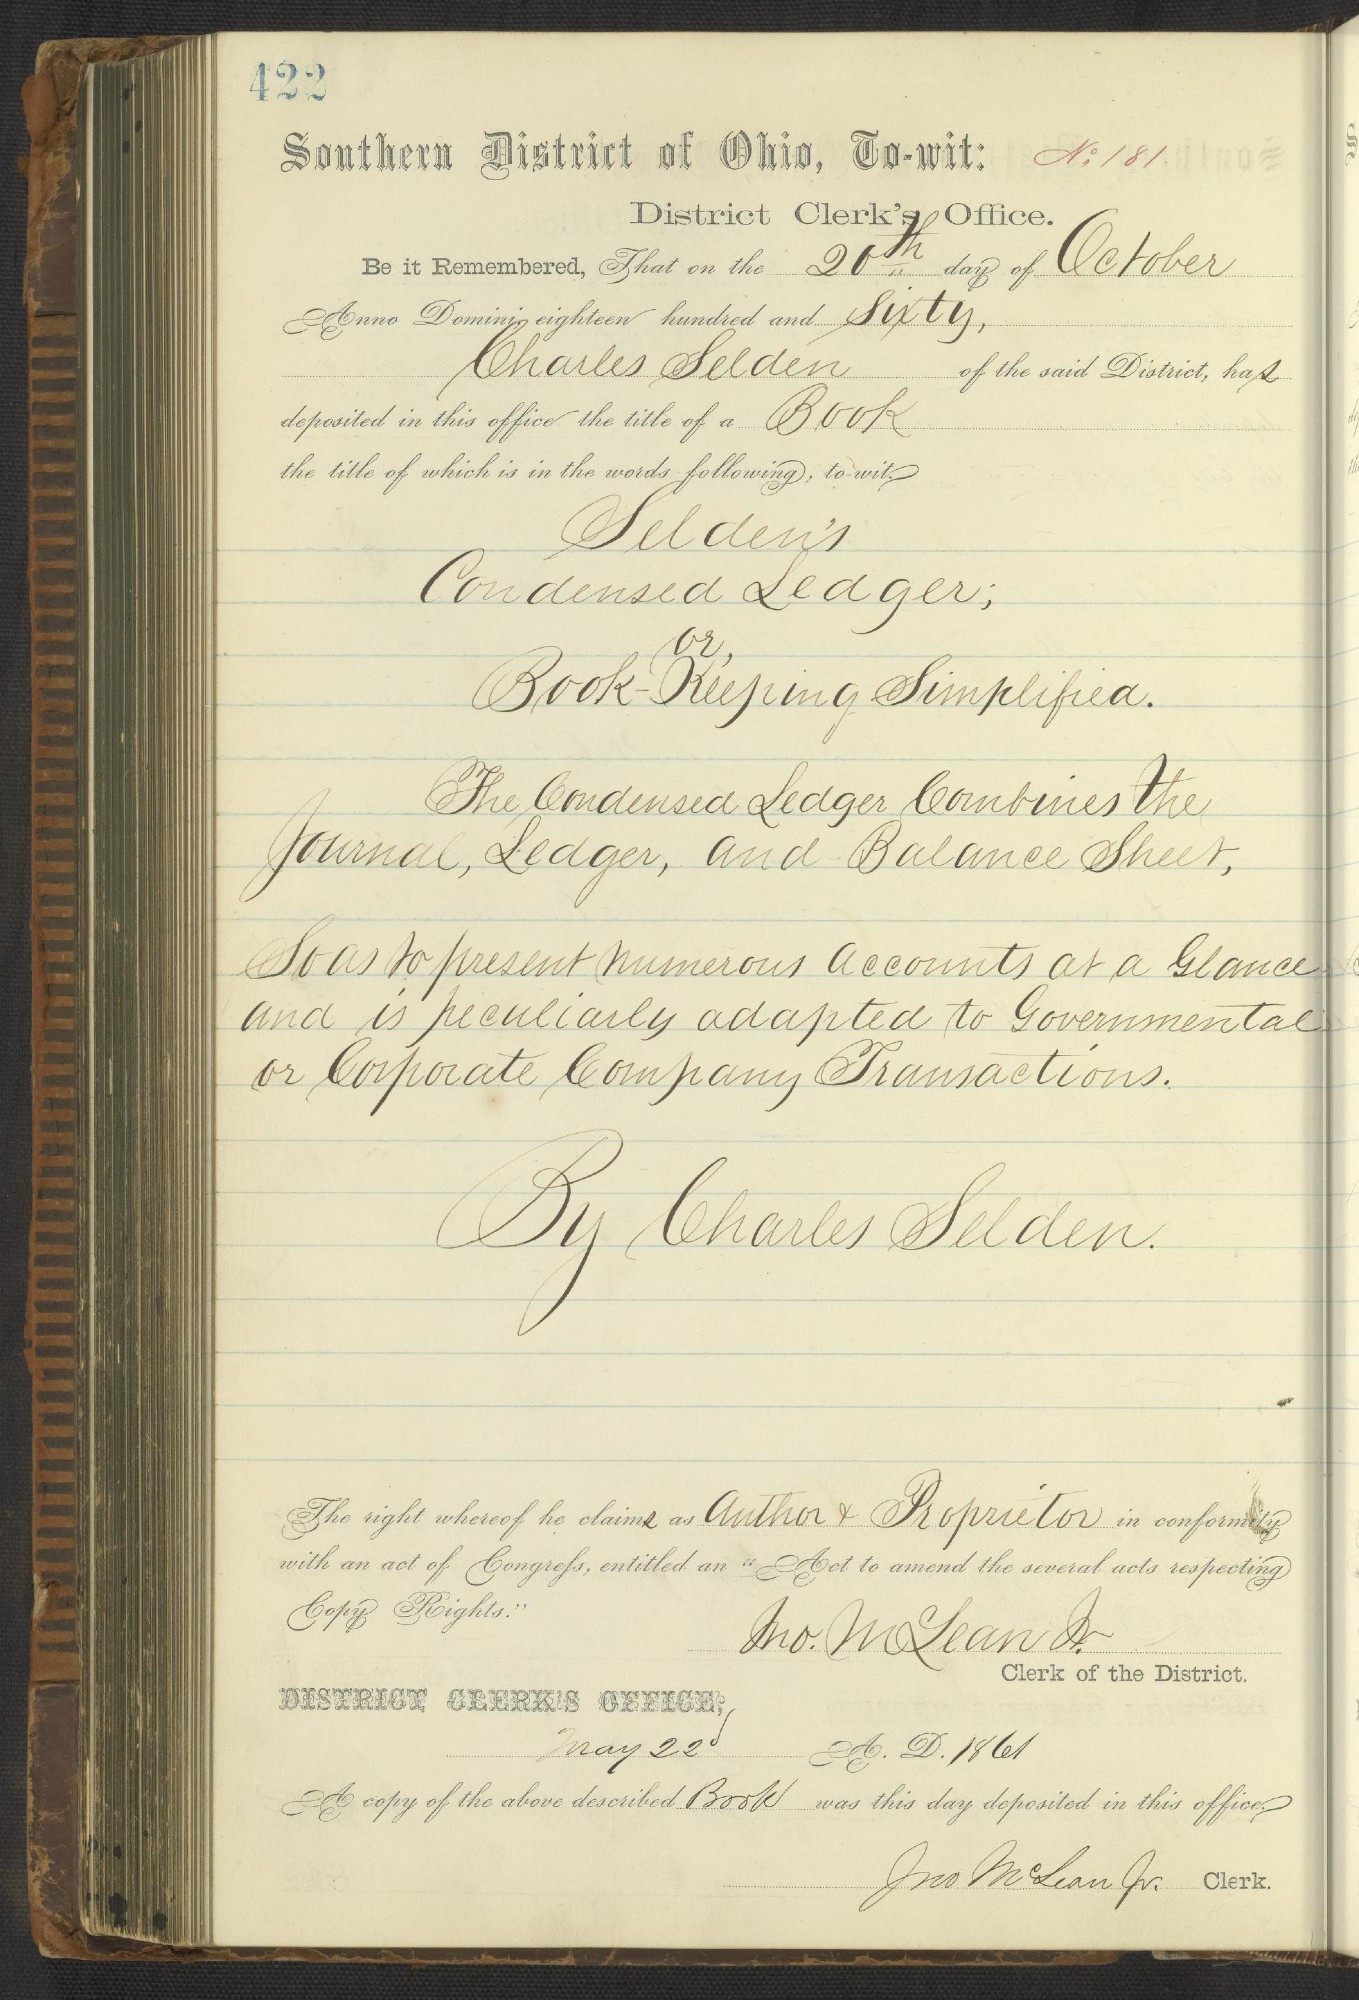 422
Southern District of Ohio, To-wit: No. 181
District Clerk's Office.
Be it Remembered, That on the 20th day of October
Anno Domini eighteen hundred and Sixty,
Charles Selden of the said District, has
deposited in this office the title of a Book
the title of which is in the words following, to-wit,
Selden's
Condensed Ledger;
or,
Book-Keeping Simplified.
The Condensed Ledger Combines the
Journal, Ledger, and Balance Sheet,
So as to present numerous Accounts at a Glance
and is peculiarly adapted to Governmental
or Corporate Company Transactions.
By Charles Selden.
The right whereof he claims as Author & Proprietor in conformity
with an act of Congress, entitled an "Act to amend the several acts respecting
Copy Rights."
Jno. McLean Jr.
Clerk of the District.
DISTRICT CLERK'S OFFICE,
May 22d A. D. 1861
A copy of the above described Book was this day deposited in this office,
Jno McLean Jr. Clerk.